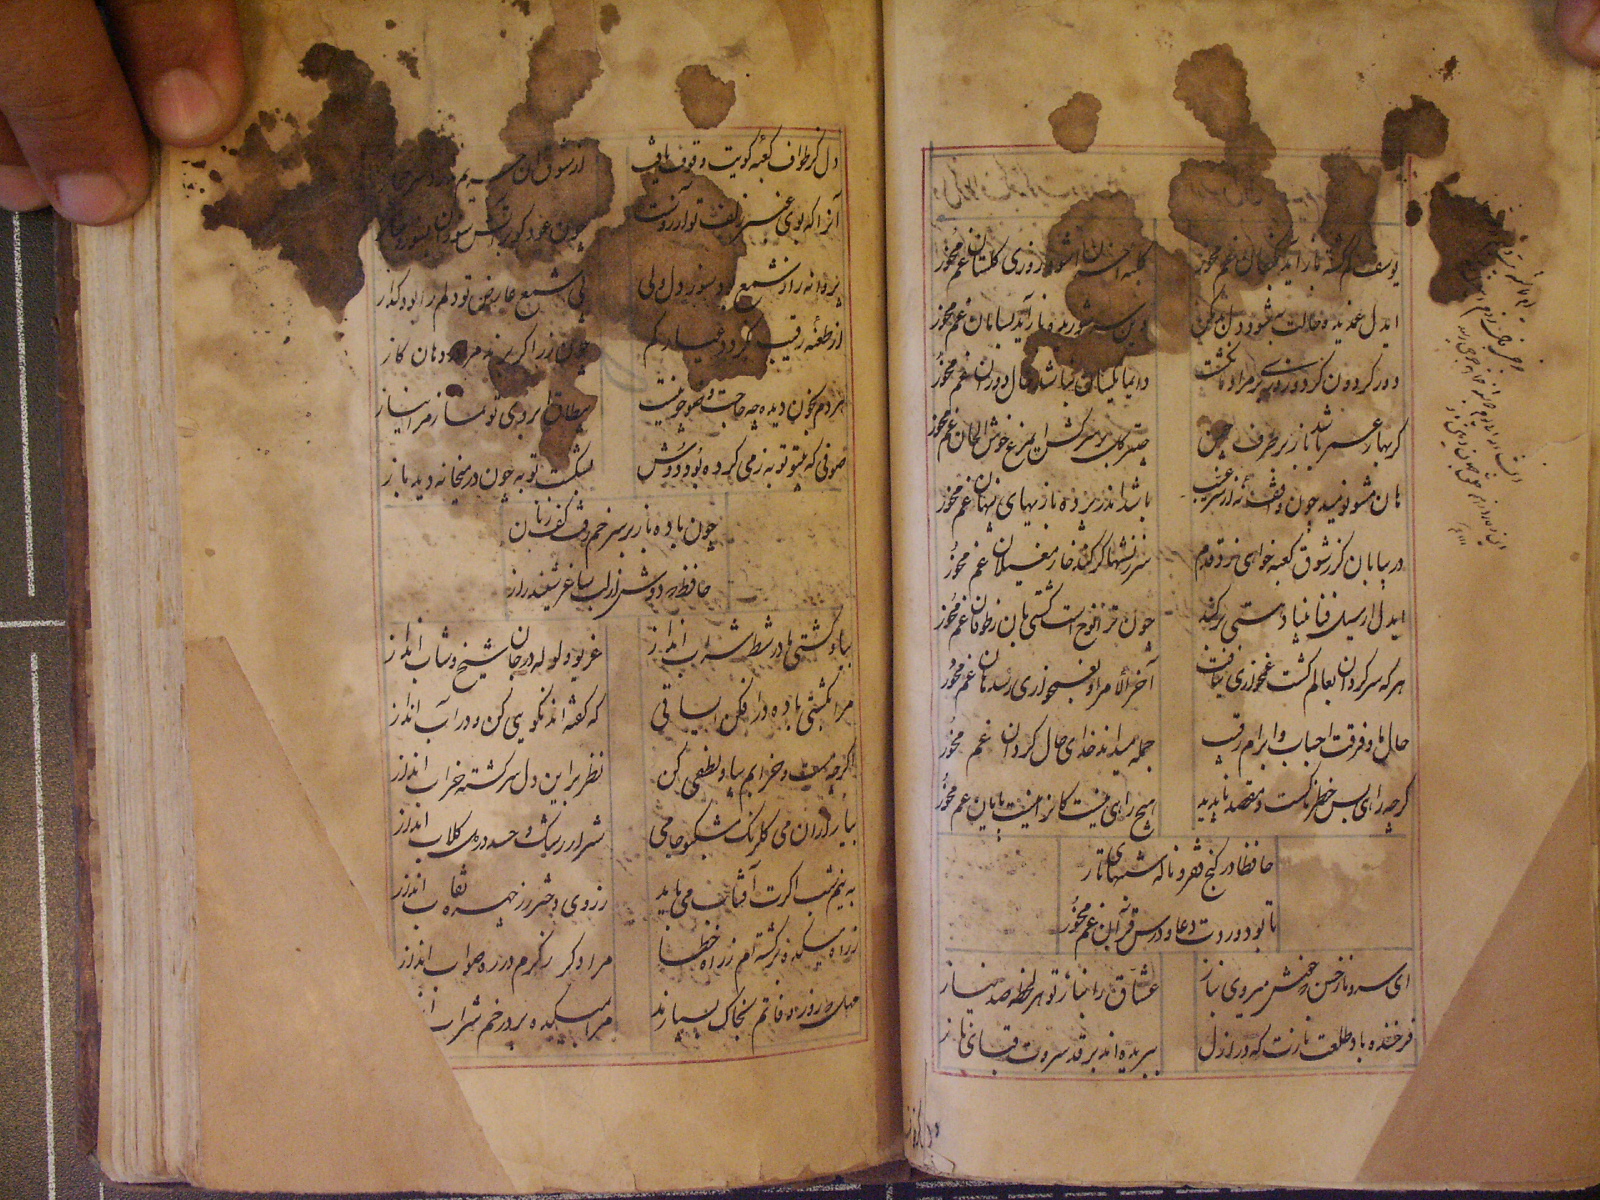 یوسف گم گشته باز آید بکنعان غم مخور
کلبه احزان شود روزی گلستان غم مخور
ایدل غمدیده حالت به شود دل بد مکن
وین سر شوریده باز آید بسامان غم مخور
دور گردون گر دو روزی بر مراد نگشت
دایما یکسان نباشد حال دوران غم مخور
گر بهار عمر باشد باز بر طرف چمن
چتر گل بر سر کشی ای مرغ خوش الحان غم مخور
هان مشو نومید چون واقف نه از سر غیب
باشد اندر پرده بازیهای پنهان غم مخور
در بیابان گر ز شوق کعبه خواهی زد قدم
سرزنشها گر کند خار مغیلان غم مخور
ایدل ار سیل فنا بنیاد هستی بر کند
چون ترا نوح است کشتی بان ز طوفان غم مخور
هر که سرگردان بعالم گشت غمخوری نیافت
آخر الامر او بغمخوری رسد هان غم مخور
حال ما و فرقت احباب و ابرام رقیب
جمله میداند خدای حال گردان غم مخور
گرچه راهی بس خطرناکست و مقصد ناپدید
هیچ راهی نیست کانرا نیست پایان غم مخور
حافظا در کنج فقر و ناله شبهای تار
تا بود وردت دعا و درس قرآن غم مخور
ای سرو ناز حسن که خوش میروی بناز
عشاق را بناز تو هر لحظه صد نیاز
فرخنده باد طلعت نازت که در ازل
ببریده اند بر قد سروت قبای ناز
دل کز طواف کعبه کویت وقوف یافت
از شوق آن حریم ندارد سر حجاز
آنرا که بوی عنبر زلف تو آرزوست
چون عود گو بر آتش سوزان بسوز و ساز
پروانه را ز شمع بود سوز دل ولی
بی شمع عارض تو دلم را بود گداز
از طعنه رقیب نگردد عیار کم
چون زر اگر برند مرا در دهان گاز
هر دم بخون دیده چه حاجت وضو چو نیست
بیطاق ابروی تو نماز مرا نیاز
صوفی که بیتو توبه ز می کرده بود دوش
بشکست توبه چون در میخانه دید باز
چون باده باز بر سر خم رفت کف زنان
حافظ که دوش از لب ساغر شنید راز
بیا و کشتی ما در شط شراب انداز
غریو و ولوله در جان شیخ و شاب انداز
مرا بکشتی باده در افکن ای ساقی
که گفته اند نکویی کن و در آب انداز
اگرچه مست و خرابم بیا و لطفی کن
نظر بر این دل سرگشته خراب انداز
بیار از آن می گلرنگ مشکبو جامی
شرار رشک و حسد در دل گلاب انداز
به نیم شب اگرت آفتاب می باید
ز روی دختر رز چهره نقاب انداز
ز راه میکده برگشته ام ز راه خطا
مرا دگر ز کرم در ره صواب انداز
مهل که روز وفاتم بخاک بسپارند
مرا بمیکده بر در خم شراب